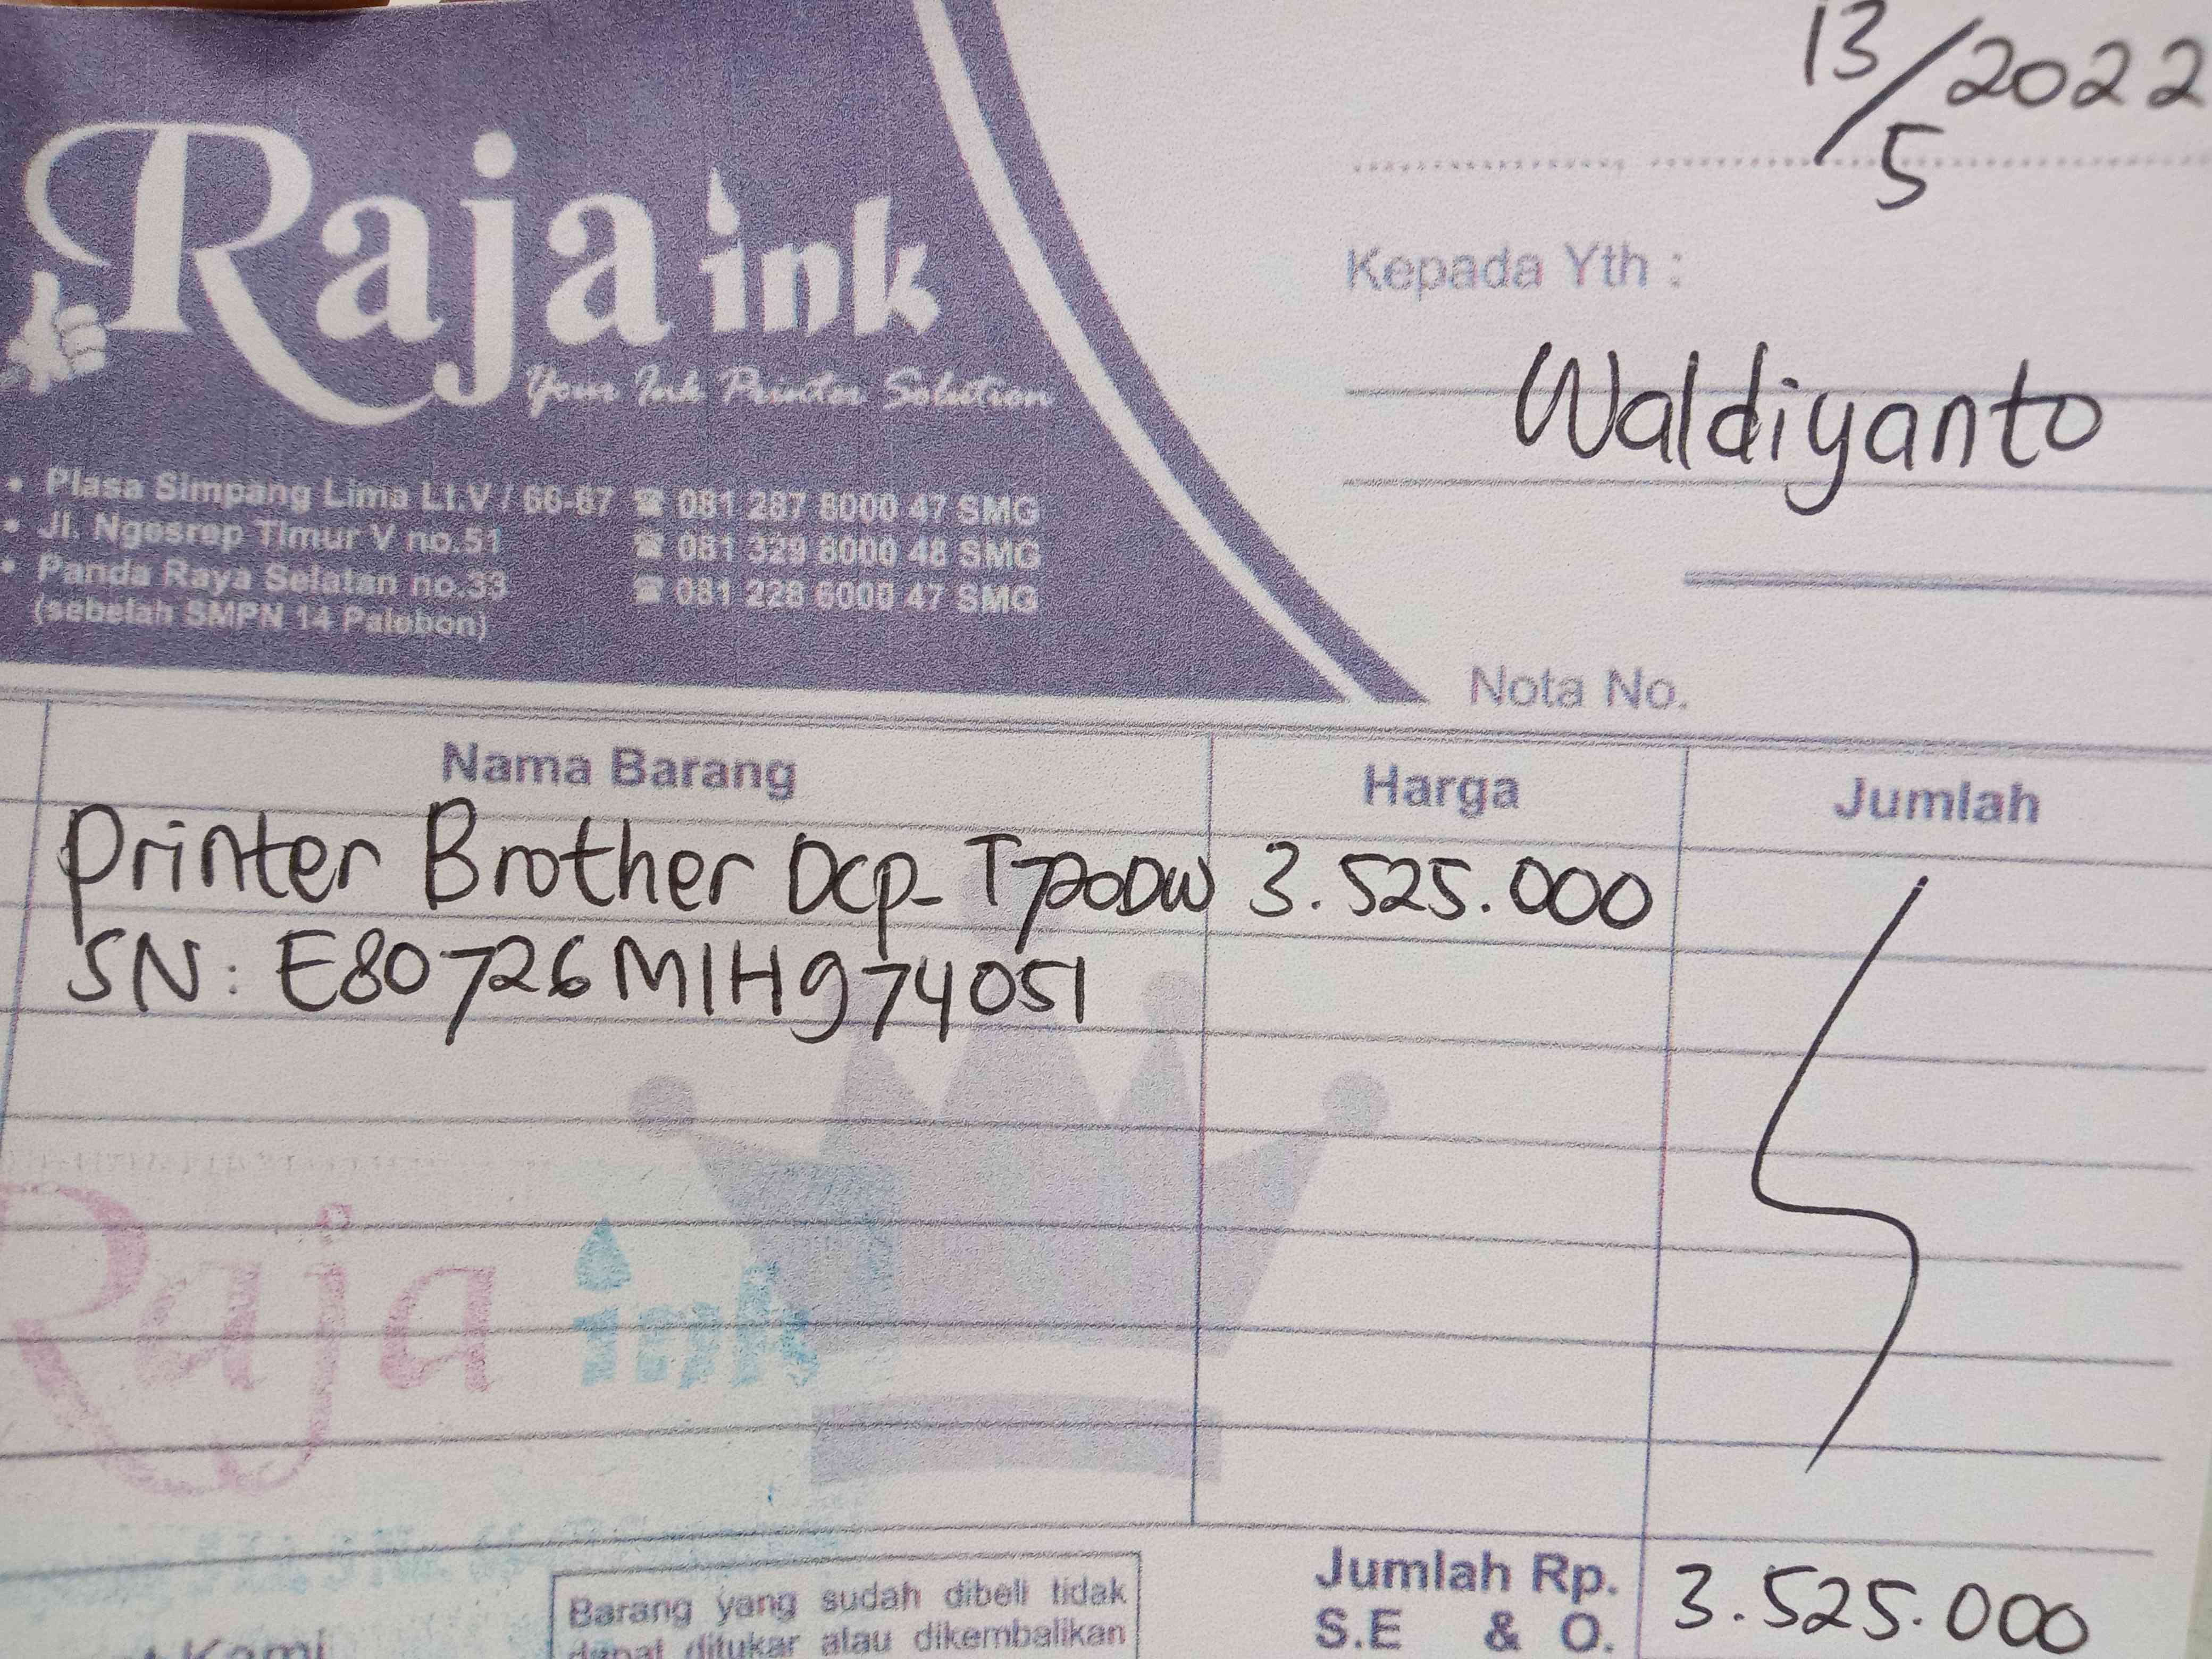 13/5/2022
Raja ink
Your Ink Printer Solution
Kepada Yth :
Waldiyanto
• Plasa Simpang Lima Lt.V / 66-67 ☎ 081 287 8000 47 SMG
• Jl. Ngesrep Timur V no.51 ☎ 081 329 8000 48 SMG
• Panda Raya Selatan no.33 ☎ 081 228 6000 47 SMG
(sebelah SMPN 14 Palebon)
Nota No.
Nama Barang Harga Jumlah
Printer Brother DCP-T720DW 3.525.000
SN: E80726M1H974051
Raja ink
Jumlah Rp. 3.525.000
S.E & O.
Barang yang sudah dibeli tidak
dapat ditukar atau dikembalikan
Kami